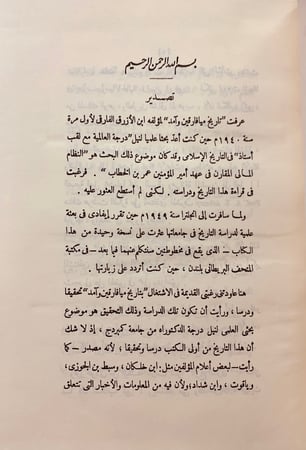 بسم الله الرحمن الرحيم
تصدير
عرفت "تاريخ ميافارقين وآمد" لمؤلفه ابن الأزرق الفارقى لأول مرة
سنة ١٩٤٠م حين كنت أعد بحثا علميا لنيل "درجة العالمية مع لقب
أستاذ" فى التاريخ الإسلامى وقد كان موضوع ذلك البحث هو "النظام
المالى المقارن فى عهد أمير المؤمنين عمر بن الخطاب". فرغبت
فى قراءة هذا التاريخ ودراسته. لكنى لم أستطع العثور عليه.
ولما سافرت إلى انجلترا سنة ١٩٤٩م حين تقرر إيفادى فى بعثة
علمية لدراسة التاريخ فى جامعاتها عثرت على نسخة وحيدة من هذا
الكتاب – الذى يقع فى مخطوطتين سنتكلم عنهما فيما بعد – فى مكتبة
المتحف البريطانى بلندن، حين كنت أتردد على زيارتها.
هنا عاودتنى رغبتى القديمة فى الاشتغال "بتاريخ ميافارقين وآمد" تحقيقا
ودرسا، ورأيت أن تكون تلك الدراسة وذلك التحقيق هو موضوع
بحثى العلمى لنيل درجة الدكتوراه من جامعة كمبردج، إذ لا شك
أن هذا التاريخ من أولى الكتب درسا وتحقيقا، لأنه مصدر – كما
رأيت – لبعض أعلام المؤلفين مثل: ابن خلكان، وسبط بن الجوزى،
وياقوت، وابن شداد؛ ولأن فيه من المعلومات والأخبار التى تتعلق